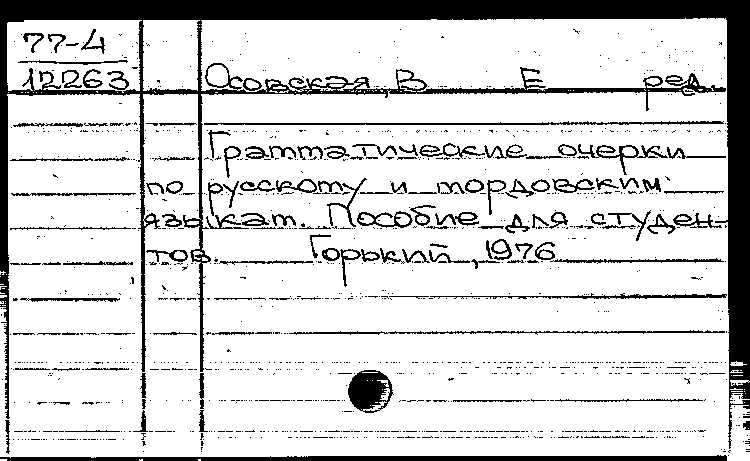 77-4
12263
Осовская, В Е ред.
Грамматические очерки
по русскому и мордовским
языкам. Пособие для студен-
тов. Горький, 1976